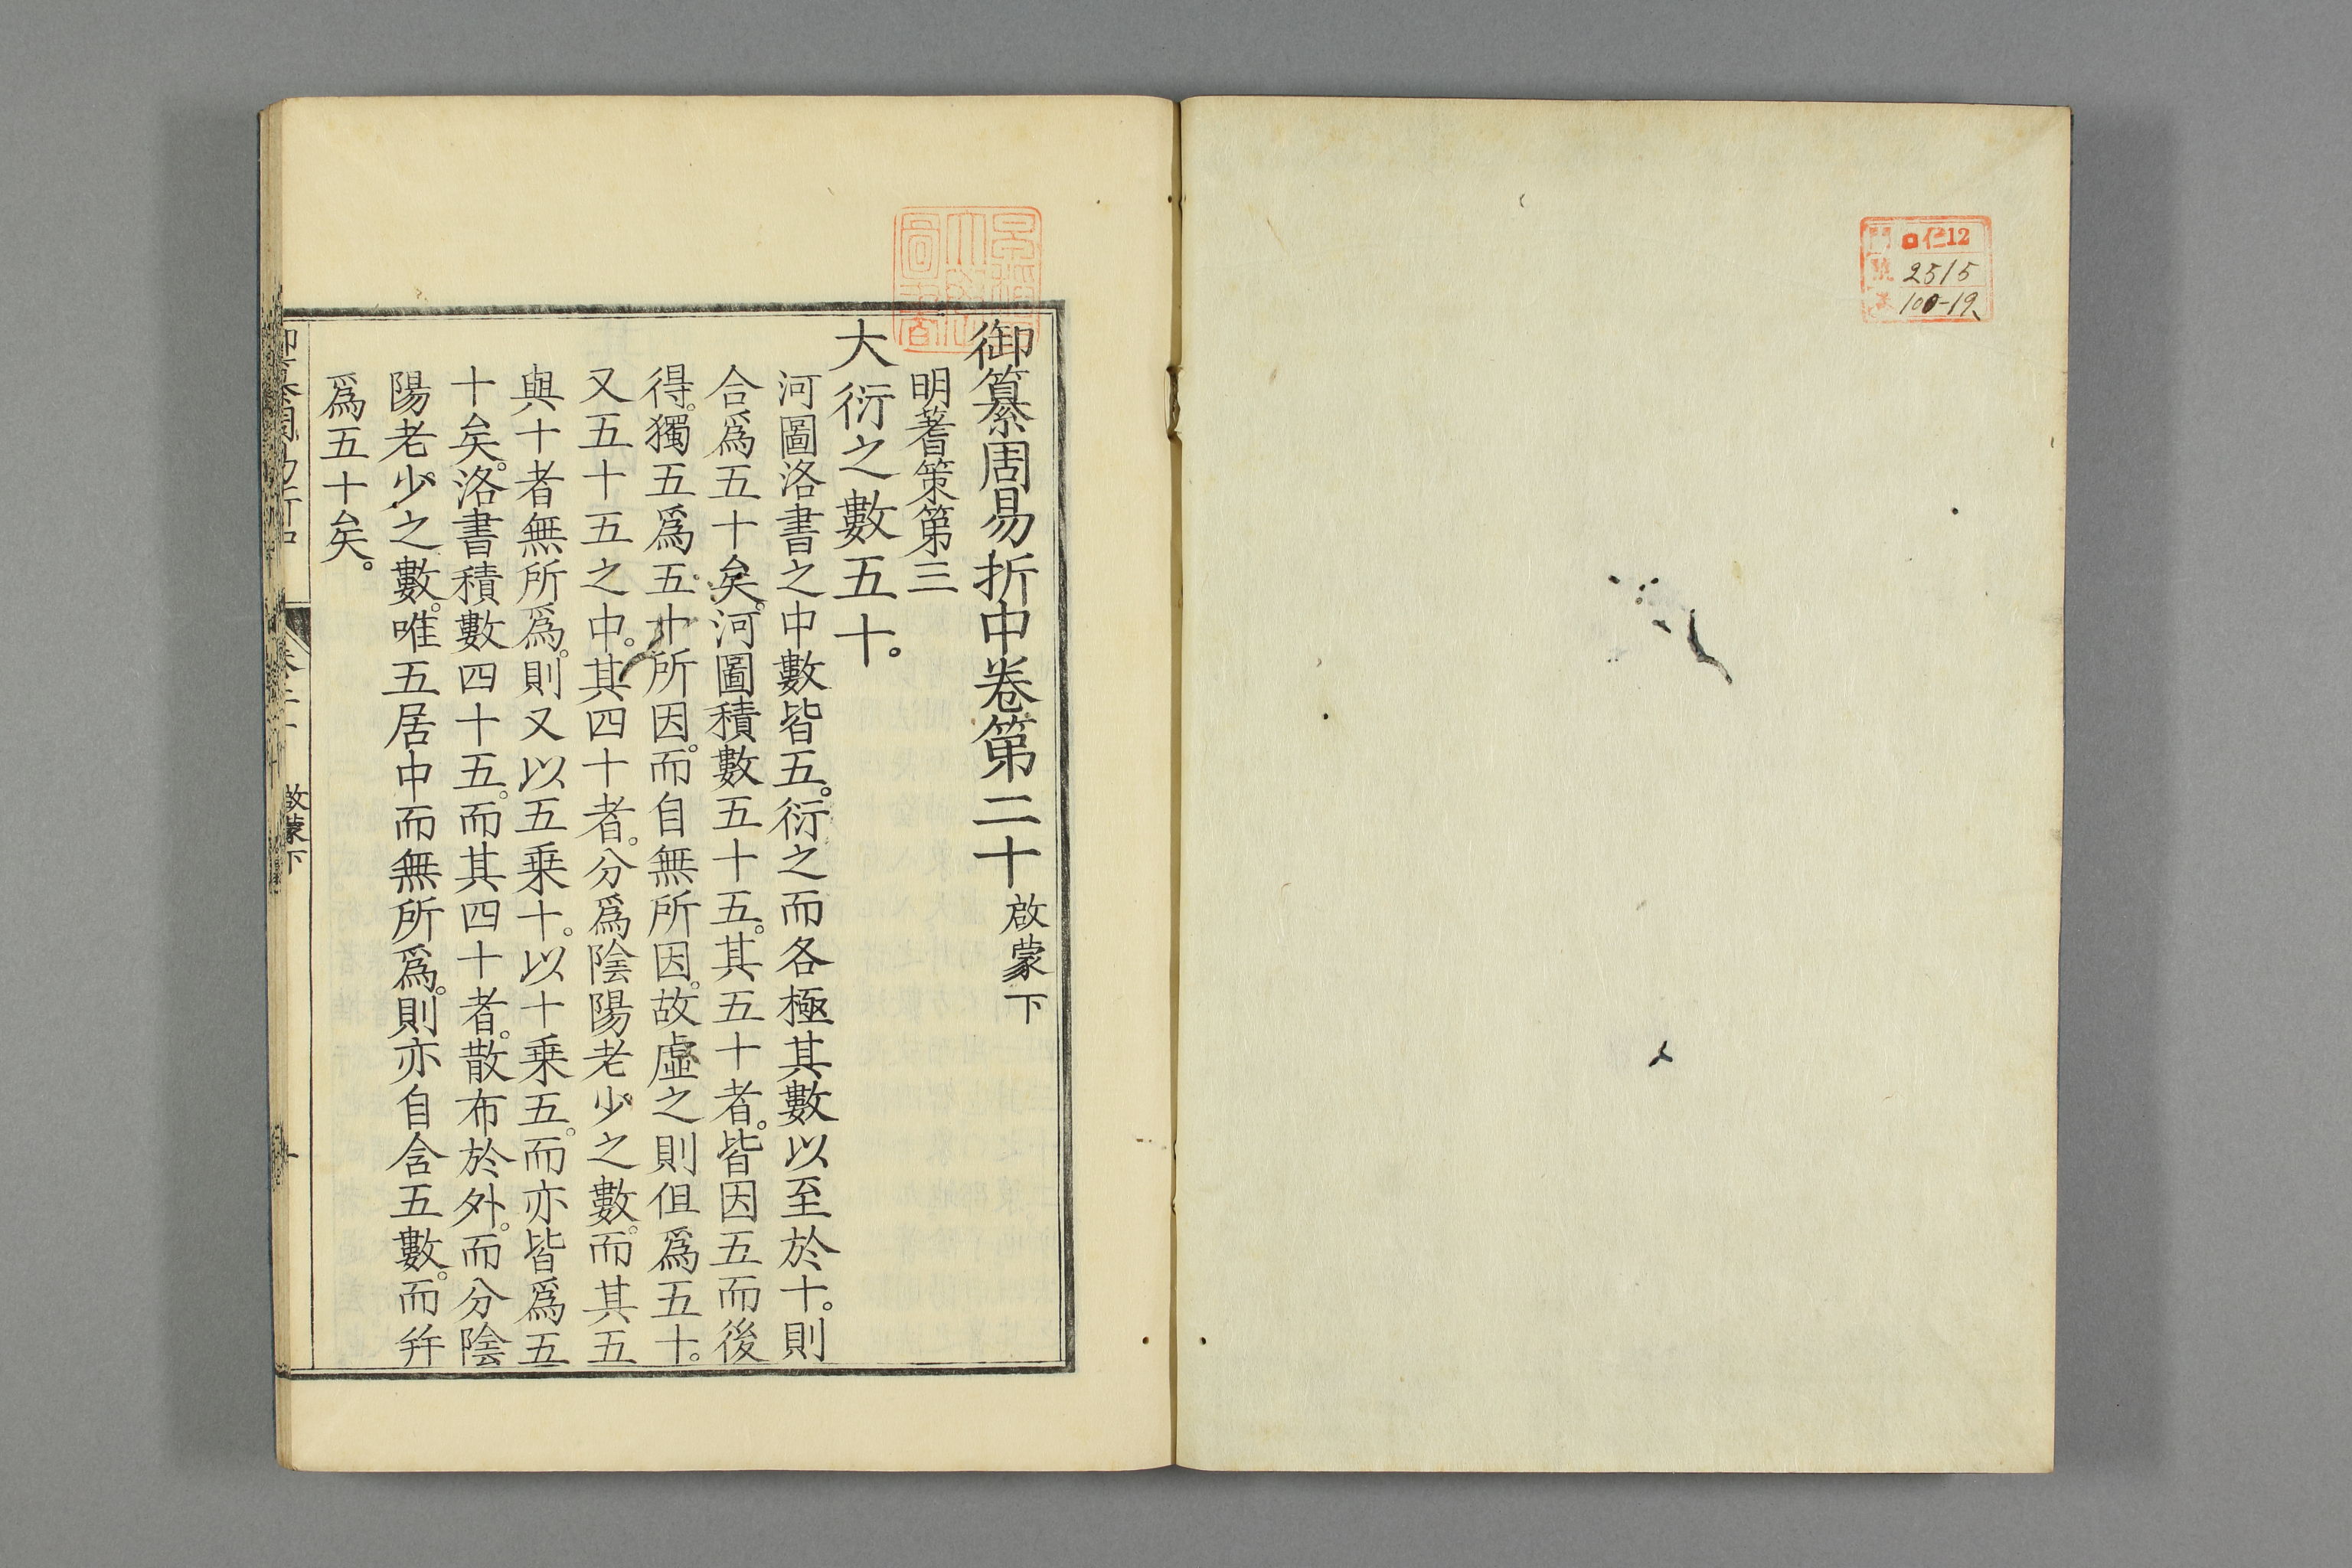 門 ロ仁12
號 2515
卷 100-19
御纂周易折中卷第二十 啟蒙下
明蓍策第三
大衍之數五十。
河圖洛書之中數皆五。衍之而各極其數以至於十。則
合爲五十矣。河圖積數五十五。其五十者。皆因五而後
得。獨五爲五十所因。而自無所因。故虛之則但爲五十。
又五十五之中。其四十者。分爲陰陽老少之數。而其五
與十者無所爲。則又以五乗十。以十乗五。而亦皆爲五
十矣。洛書積數四十五。而其四十者。散布於外。而分陰
陽老少之數。唯五居中而無所爲。則亦自含五數。而幷
爲五十矣。
御纂周易折中 卷二十 啟蒙下 一